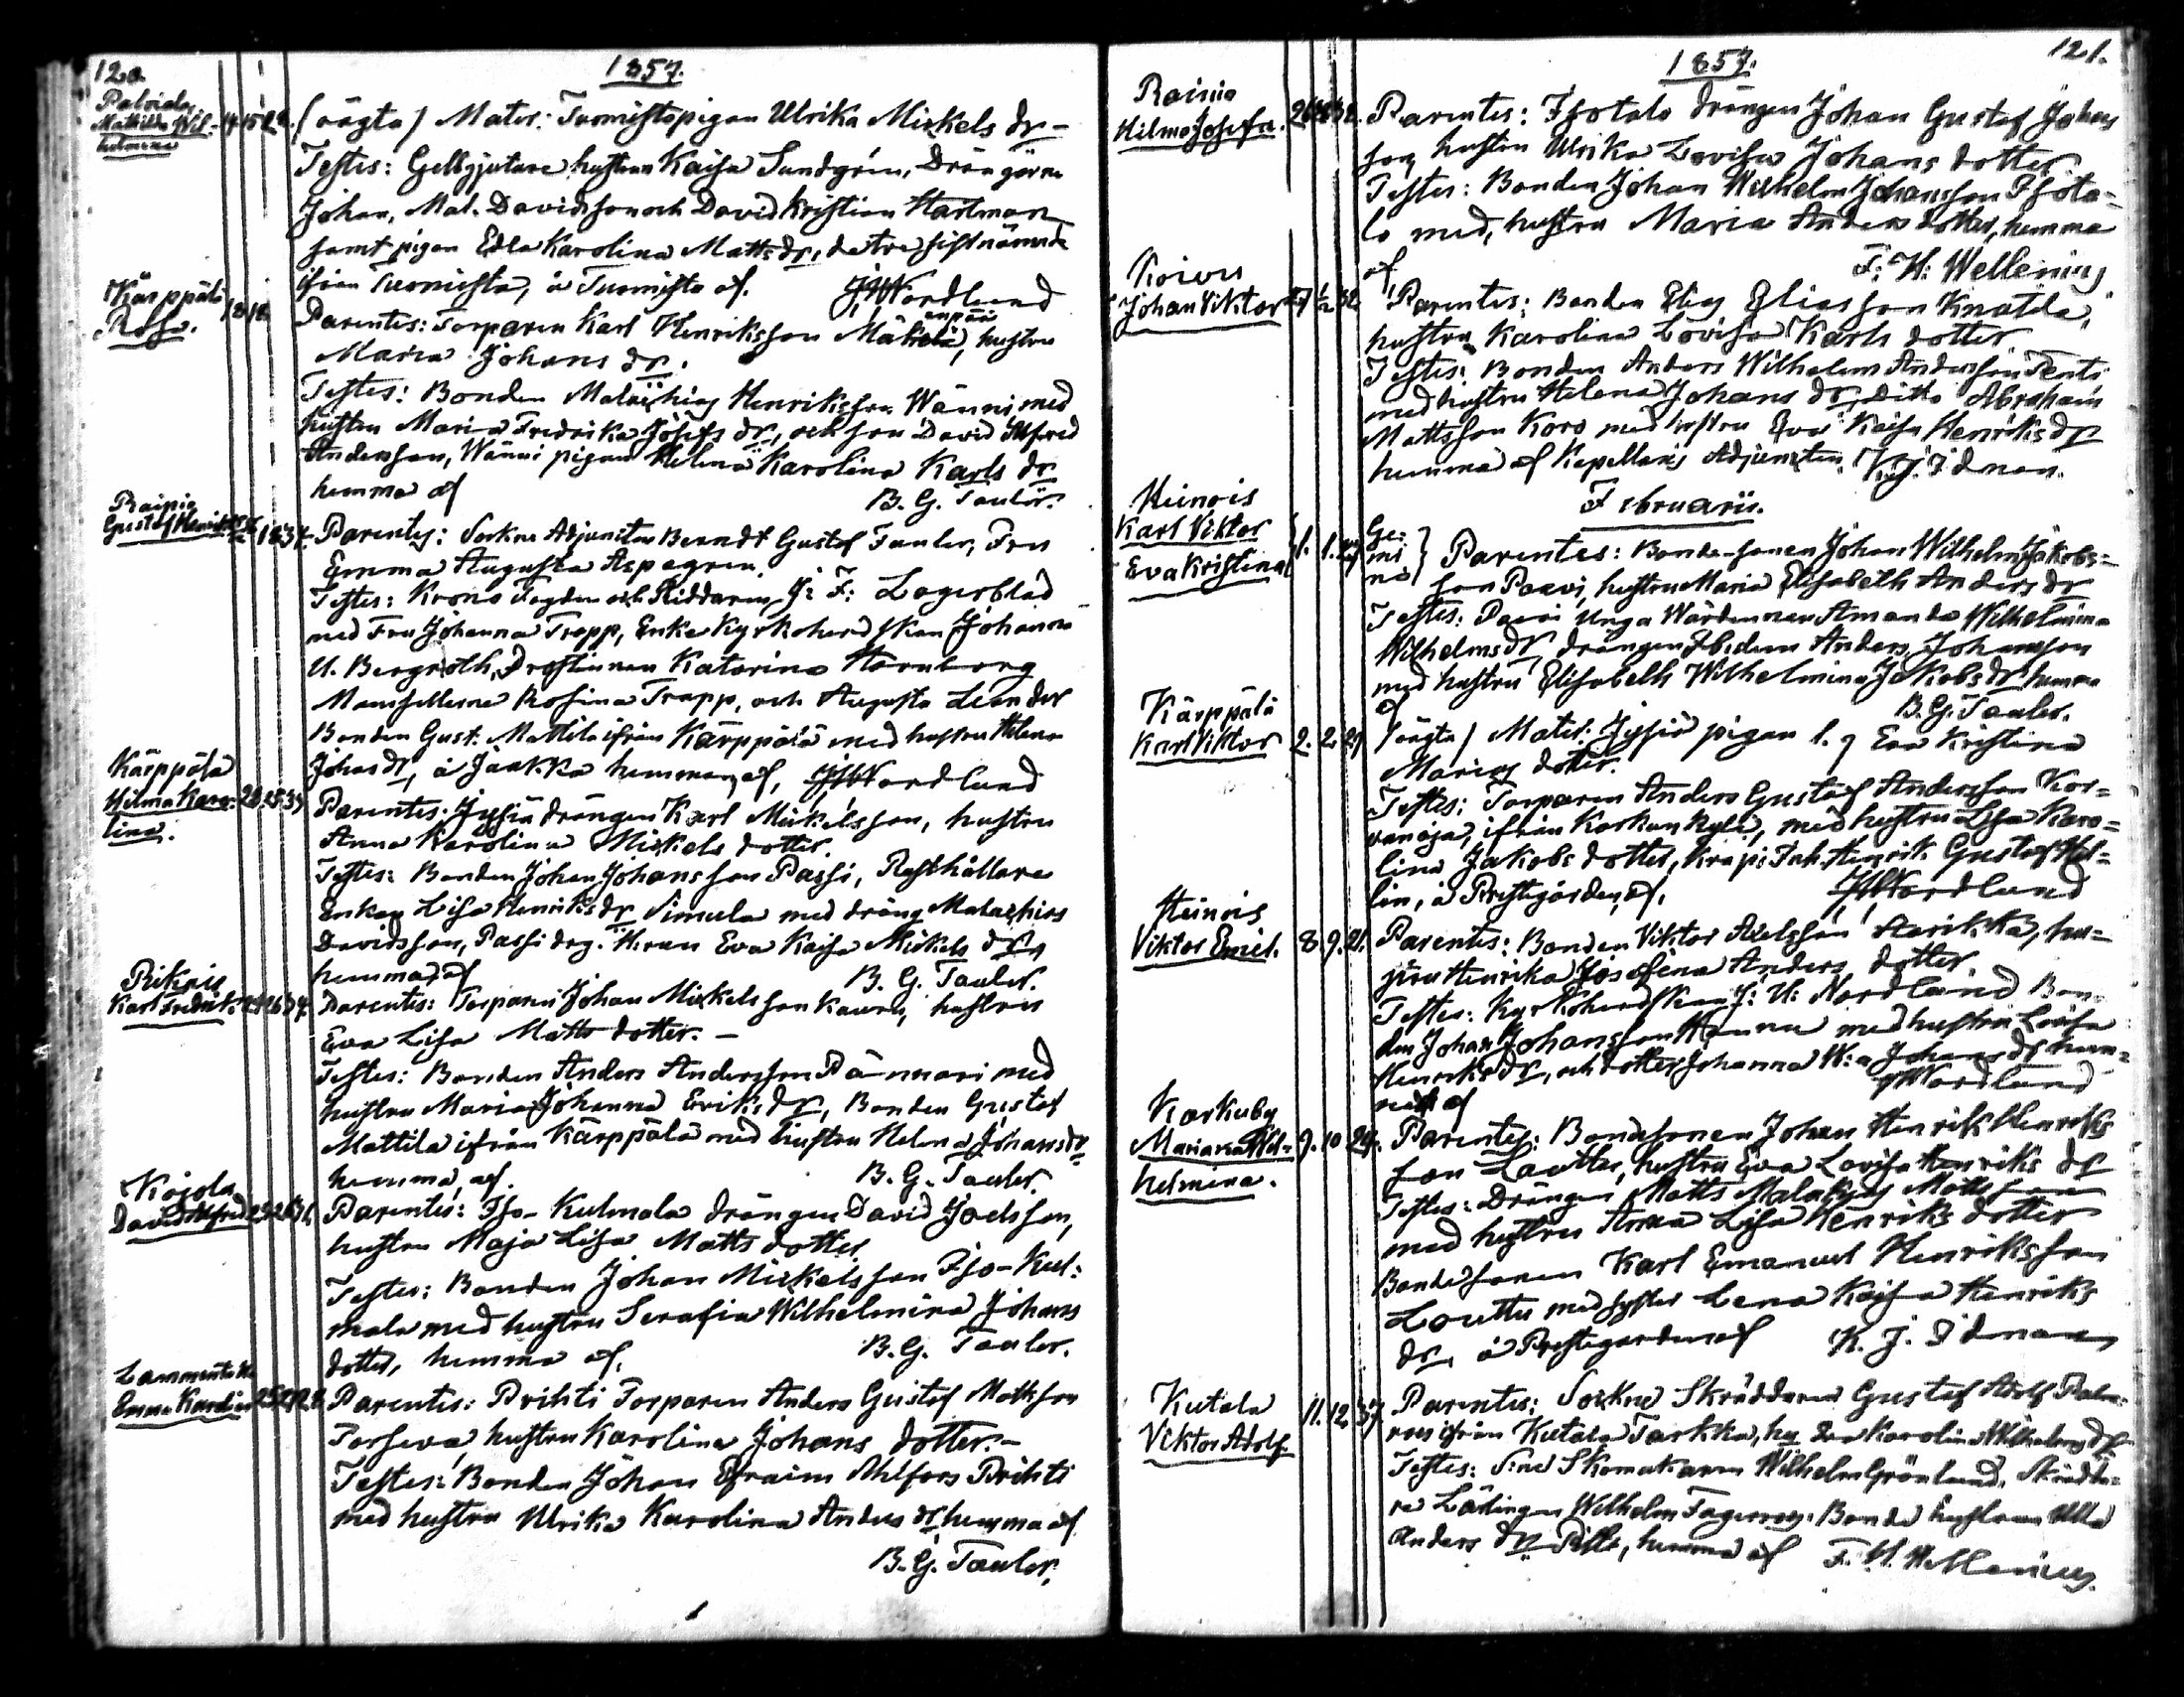 120.
1857.
Paloiala
Mathilda Wil-
helmina
14 15 28.
(oägta) Mater: Tuomistopigan Ulrika Mickels dr –
Testes: Gelbgjutare hustrun Kaisa Sundgrén, Drängarne
Johan, Mal. Davidsson och David Kristian Hartman
samt pigan Edla Karolina Matts dr, de tre sistnämnde
ifrån Tuomisto, å Tuomisto af. Nordlund
Kärppälä
Rosa.
Parentes: Torparen Karl Henriksson Mäkelä, hustru
Maria Johans dr.
Testes: Bonden Malachias Henriksson Wänni med
hustru Maria Fredrika Josefs dr, och son David Alfred
Andersson, Wänni pigan Helena Karolina Karls dr
hemma af B. G. Tauler.
Raipio
Gustaf Henrik
Parentes: Sockne Adjuncten Berndt Gustaf Tauler, Fru
Emma Augusta Aspegren.
Testes: Krono Fogden och Riddaren J: F: Lagerblad
med Fru Johanna Trapp, Enke Kyrkoherdskan Johanna
U. Bergroth, Drostinnan Katarina Hornborg
Mamsellerna Rosina Trapp, och Augusta Leander
Bonden Gust. Mattila ifrån Kärppälä med hustru Helena
Johansdr, å Jaakka hemman af, Nordlund
Kärppälä
Hilma Karo-
lina.
Parentes: Jyssiä drängen Karl Mickelsson, hustru
Anna Karolina Mickels dotter.
Testes: Bonden Johan Johansson Passi, Rusthållare
Enkan Lisa Henriks dr Simula med dräng Malachias
Davidsson, Passi drg. H:run Eva Kaisa Mickels dr,
hemma af B. G. Tauler.
Karl Fredrik
Parentes: Torparen Johan Mickelsson Kauru, hustru
Eva Lisa Matts dotter. –
Testes: Bonden Anders Andersson Pännäri med
hustru Maria Johanna Eriks dr, Bonden Gustaf
Mattila ifrån Kärppälä med hustru Helena Johansdr
hemma af. B. G. Tauler.
Kojola
David Alfred
Parentes: Iso-Kulmala drängen David Joelsson,
hustru Maja Lisa Matts dotter.
Testes: Bonden Johan Mickelsson Iso-Kul-
mala med hustru Serafia Wilhelmina Johans
dotter, hemma af. B. G. Tauler.
Emma Karolina
Parentes: Prihti Torparen Anders Gustaf Mattsson
Torseva, hustru Karolina Johans dotter. –
Testes: Bonden Johan Efraim Ahlfors Prihti
med hustru Ulrika Karolina Anders dr hemma af
B. G. Tauler.
121.
1857.
Raisio
Hilma Josefa.
Parentes: Isotalo drängen Johan Gustaf Johans
son, hustru Ulrika Lovisa Johans dotter
Testes: Bonden Johan Wilhelm Johansson Isota-
lo med, hustru Maria Anders dotter, hemma
af, F: H: Wellenius
Koivu
Johan Viktor
Parentes: Bonden Elias Eliasson Knaapila,
hustru Karolina Lovisa Karls dotter
Testes: Bonden Anders Wilhelm Andersson Penti
med hustru Helena Johans dr, Ditto Abraham
Mattsson Koro med hustru Eva Kaisa Henriks dr
hemma af Kapellans Adjuncten K. J. Idman.
Februarii.
Heinois
Karl Viktor
Eva Kristina
1. 1. 27
Ge-
mi
ni
Parentes: Bonde-sonen Johan Wilhelm Jakobs-
son Paavi, hustru Maria Elisabeth Anders dr
Testes: Paavi Unga Wärdinnan Amanda Wilhelmina
Wilhelms dr, drängen Ibidem Anders Johansson
med hustru Elisabeth Wilhelmina Jakobs dr hemma
af B. G. Tauler.
Kärppälä
Karl Viktor
2. 2. 27
(oägta) Mater: Jyssiä pigan l. q Eva Kristina
Marias dotter.
Testes: Torparen Anders Gustaf Andersson Kor-
vanoja, ifrån Karkunkylä, med hustru Lisa Karo-
lina Jakobs dotter, Krapi Inh. Henrik Gustaf Hel-
lin, å Prestgården, af, Nordlund
Heinois
Viktor Emil.
8 9. 21.
Parentes: Bonden Viktor Axelsson Aarikka, hu-
stru Henrika Josefina Anders dotter
Testes: Kyrkoherdskan J: U: Nordlund Bon-
den Johan Johansson Hannu med hustru Lovisa
Henriks dr, och dotter Johanna W:a Johans dr hem-
ma af Nordlund
Karkuby
Mariana Wil-
helmina.
9. 10 24.
Parentes: Bondesonen Johan Henrik Henriks
son Lauttu, hustru Eva Lovisa Henriks dr
Testes: Drängen Matts Malakias Mattsson
med hustru Anna Lisa Henriks dotter
Bondesonen Karl Emanuel Henriksson
Louttu med syster Lena Kaisa Henriks
dr. å Prestgården af K. J. Idman
Kutala
Viktor Adolf.
11. 12 37.
Parentes: Sockne Skräddaren Gustaf Adolf Palm-
roos ifrån Kutala Tarkka, hu Eva Karolina Wilhelms dr
Testes: S:ne Skomakaren Wilhelm Grönlund, Skrädda-
re Lärlingen Wilhelm Fagerroos. Bonde hustrun Ulla
Anders dr Pillo, hemma af F. H. Wellenius.